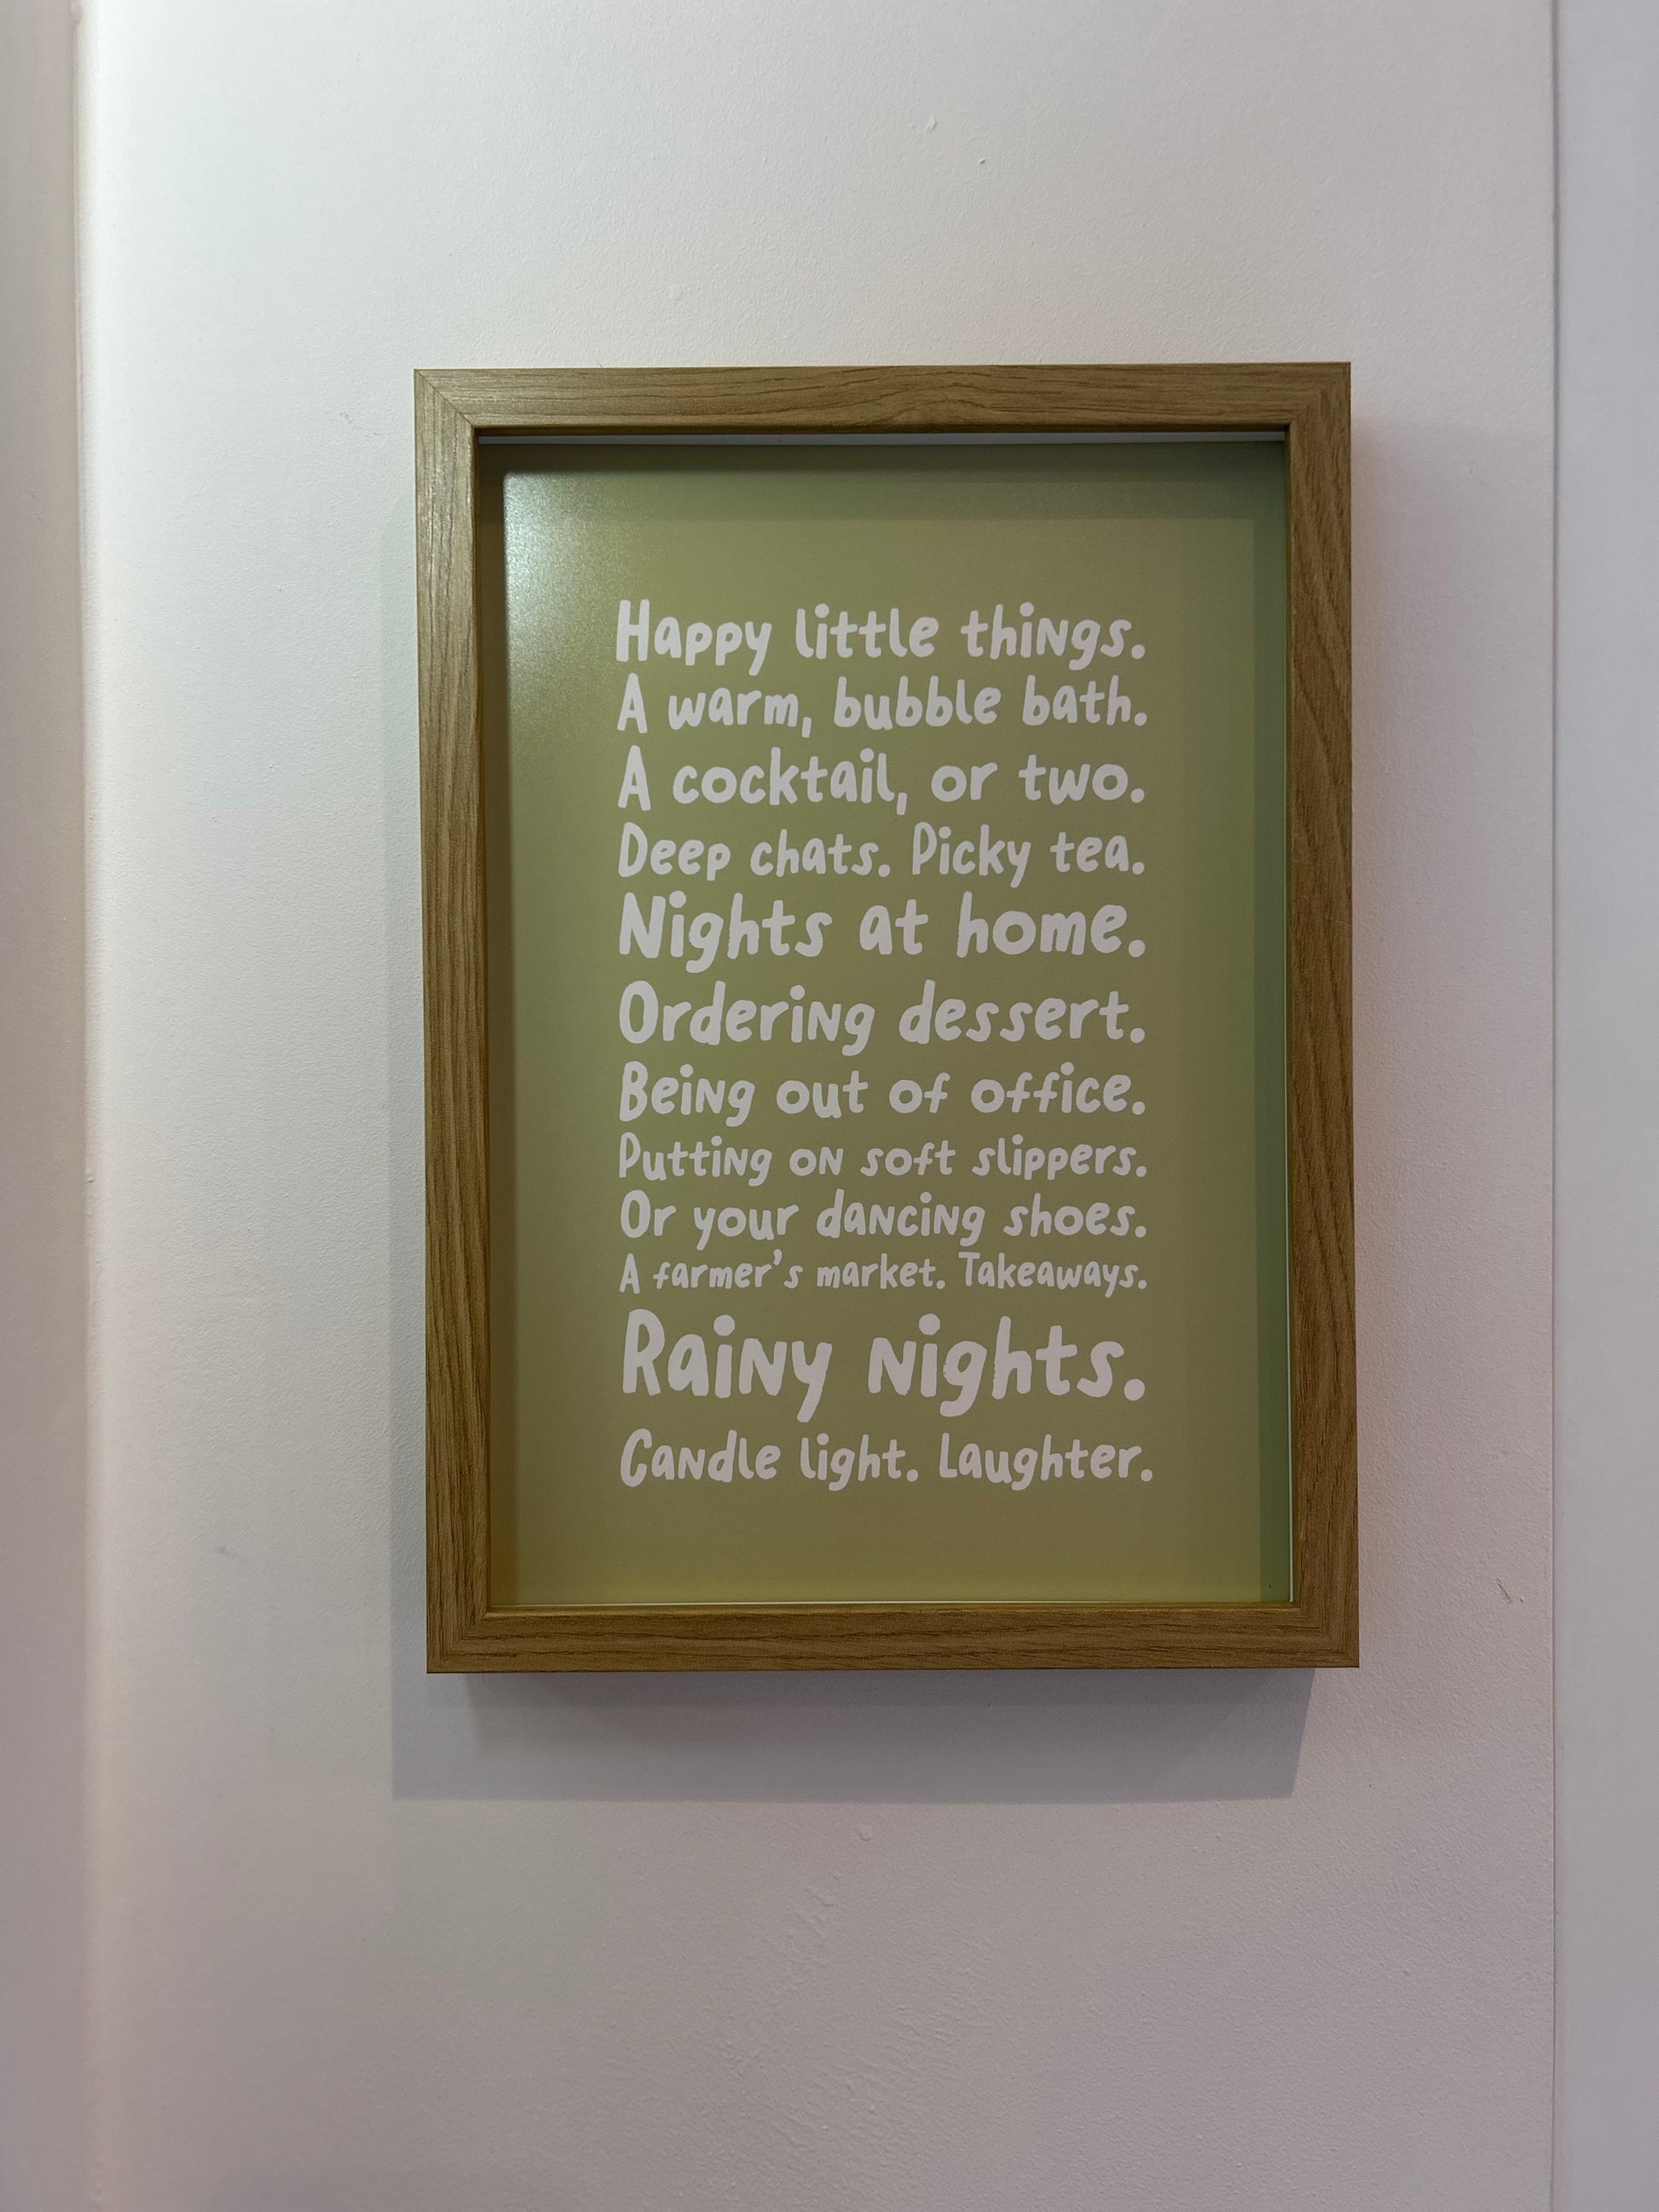 Happy little things.
A warm, bubble bath.
A cocktail, or two.
Deep chats. Picky tea.
Nights at home.
Ordering dessert.
Being out of office.
Putting on soft slippers.
Or your dancing shoes.
A farmer's market. Takeaways.
Rainy nights.
Candle light. Laughter.